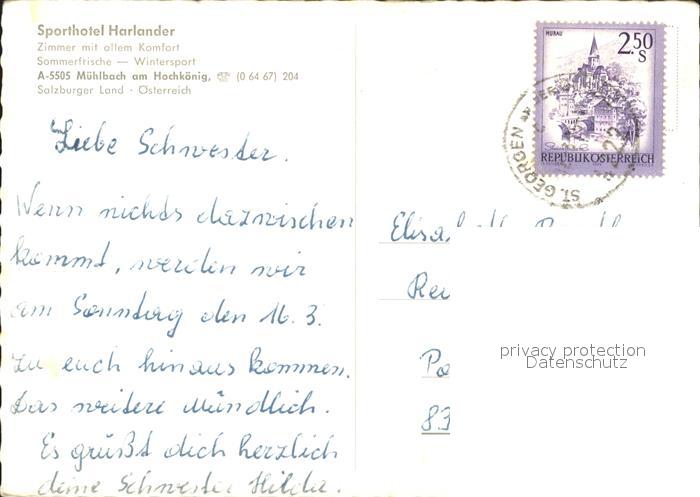 Sporthotel Harlander
Zimmer mit allem Komfort
Sommerfrische — Wintersport
A-5505 Mühlbach am Hochkönig, ☎ (0 64 67) 204
Salzburger Land · Österreich
MURAU
2.50
S
REPUBLIK ÖSTERREICH
ST. GEORGEN
Liebe Schwester.
Wenn nichts dazwischen
kommt, werden wir
am Sonntag den 16. 3.
zu euch hinaus kommen.
Das weitere Mündlich.
Es grüßt dich herzlich
deine Schwester Hilda.
83
privacy protection
Datenschutz